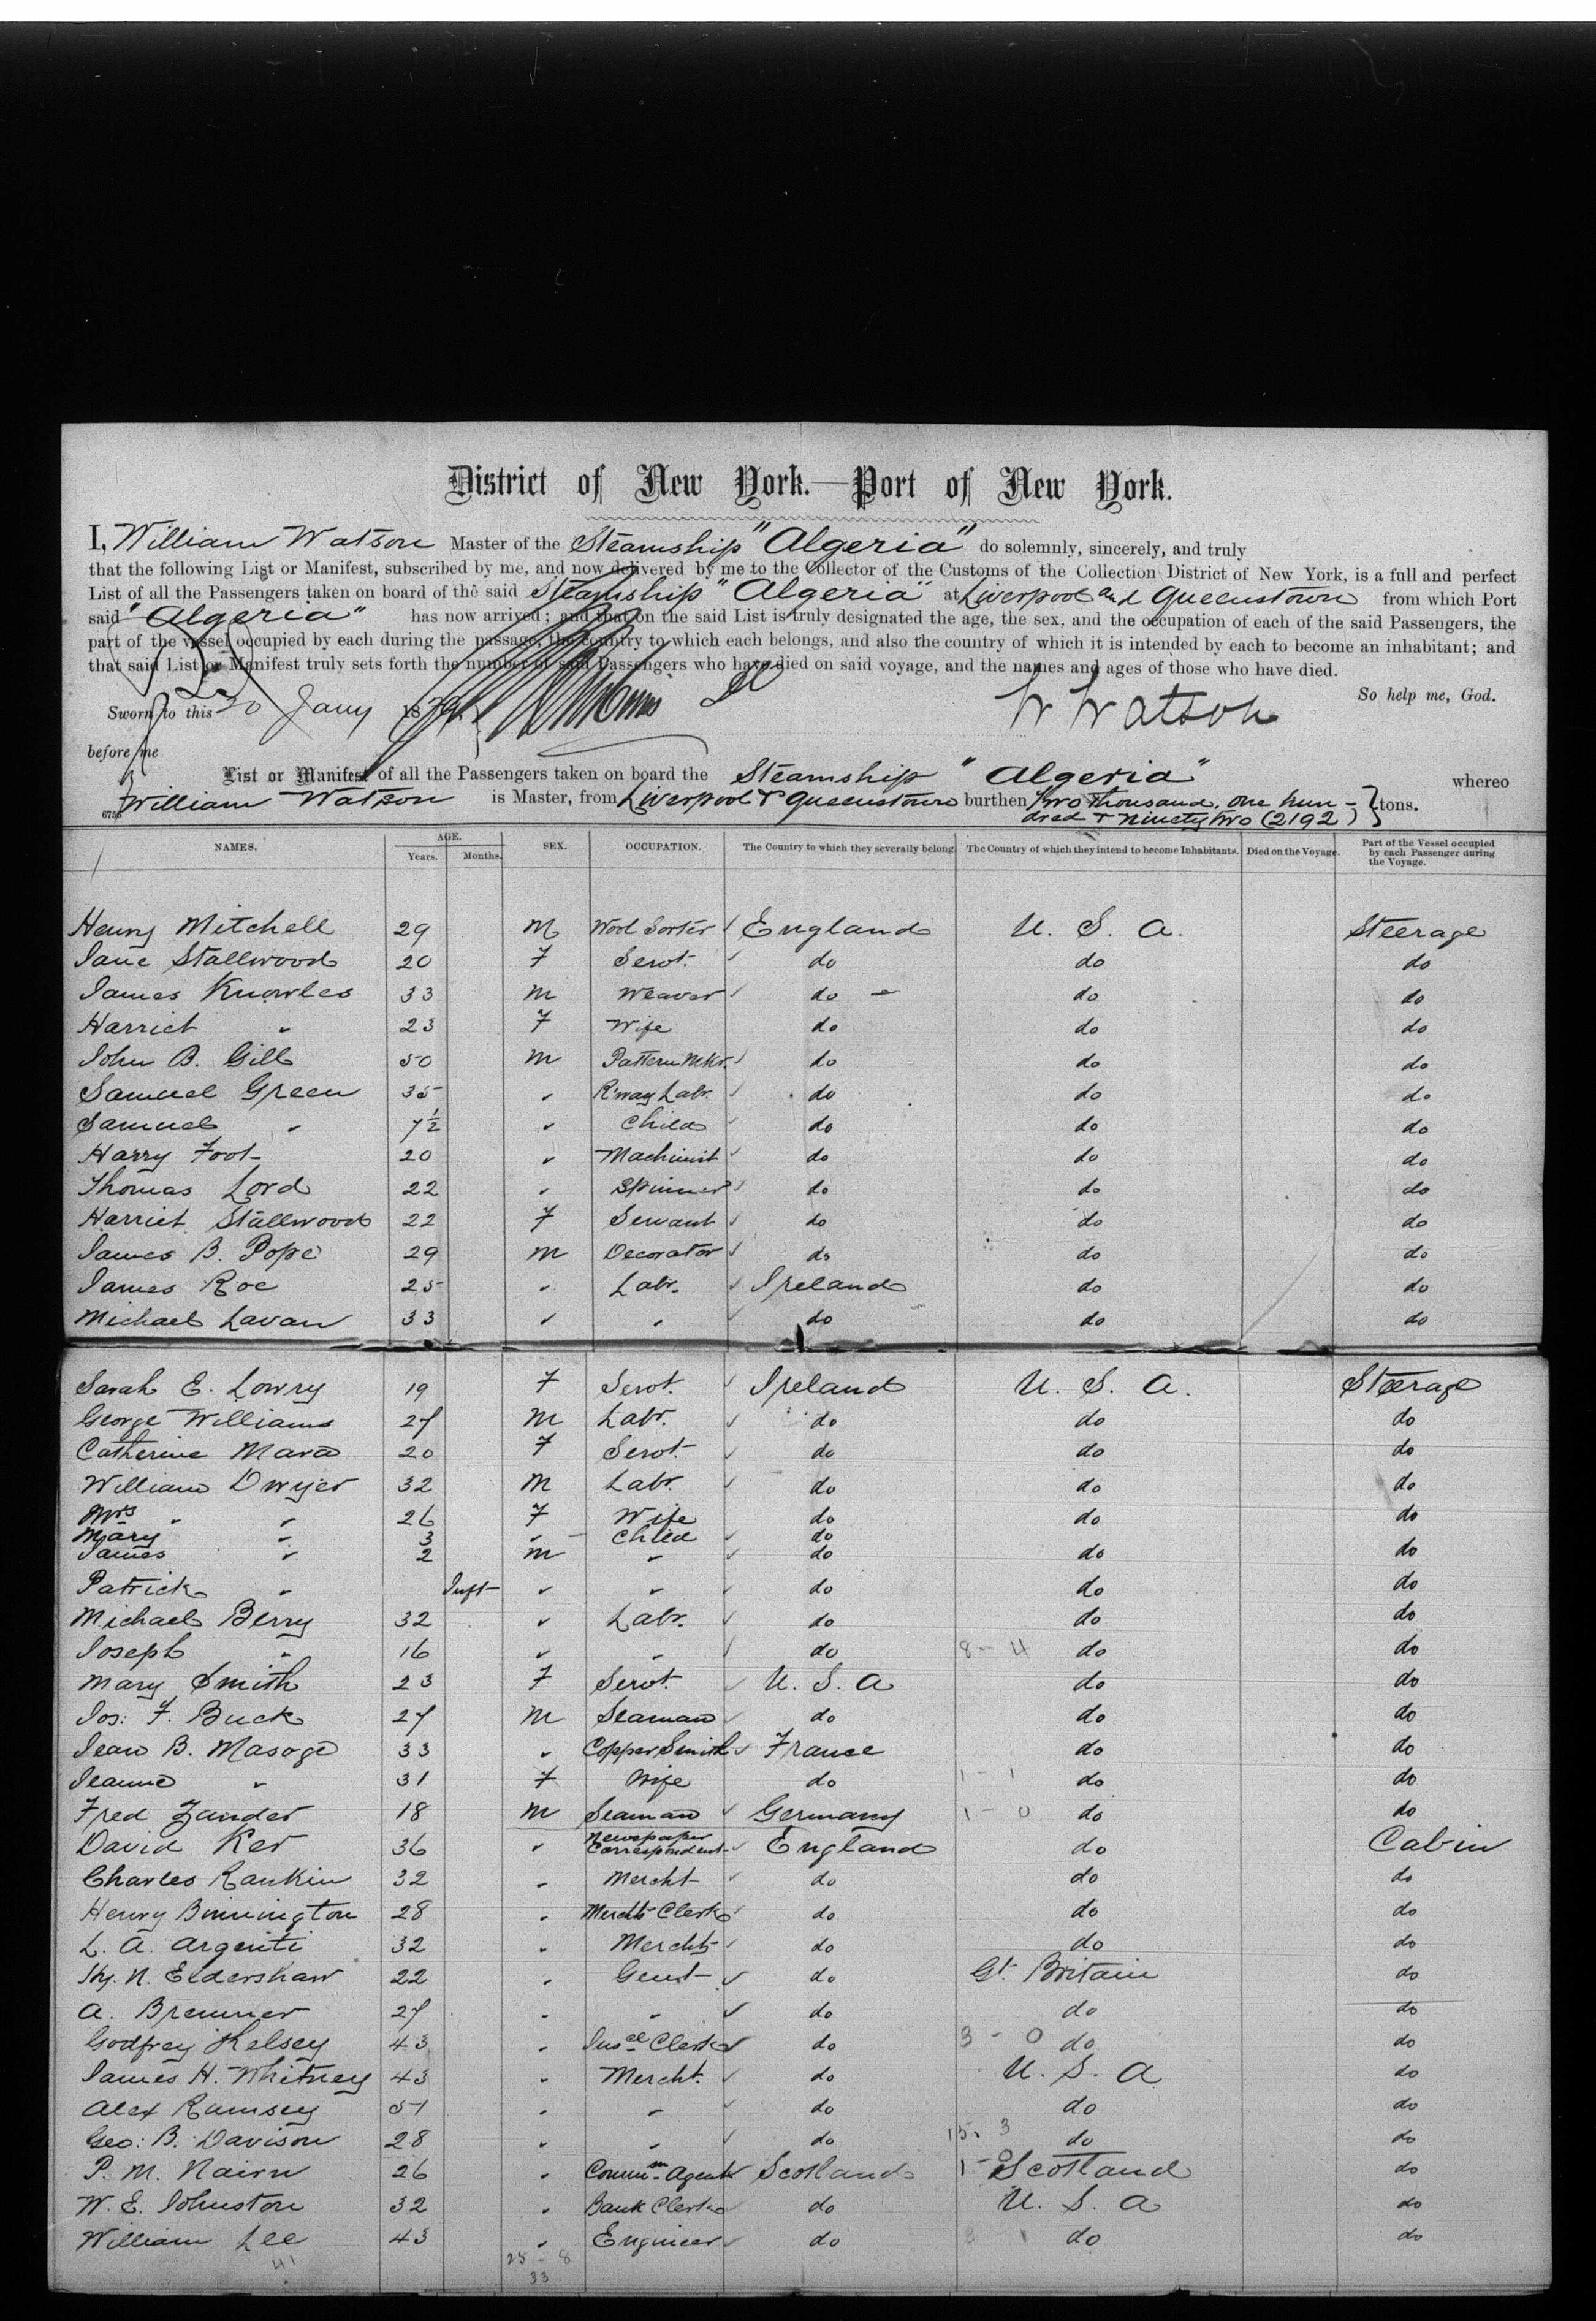 District of New York.—Port of New York.
I, William Watson Master of the Steamship "Algeria" do solemnly, sincerely, and truly
that the following List or Manifest, subscribed by me, and now delivered by me to the Collector of the Customs of the Collection District of New York, is a full and perfect
List of all the Passengers taken on board of the said Steamship "Algeria" at Liverpool and Queenstown from which Port
said "Algeria" has now arrived; and that on the said List is truly designated the age, the sex, and the occupation of each of the said Passengers, the
part of the vessel occupied by each during the passage, the country to which each belongs, and also the country of which it is intended by each to become an inhabitant; and
that said List or Manifest truly sets forth the number of said Passengers who have died on said voyage, and the names and ages of those who have died.
So help me, God.
Sworn to this 30 Jany 18 W Watson
before me
List or Manifest of all the Passengers taken on board the Steamship "Algeria" whereo
William Watson is Master, from Liverpool & Queenstown burthen Two thousand, one hun-
dred & ninety two (2192) tons.
NAMES. AGE. Years. Months. SEX. OCCUPATION. The Country to which they severally belong. The Country of which they intend to become Inhabitants. Died on the Voyage. Part of the Vessel occupied by each Passenger during the Voyage.
Henry Mitchell 29 M Wool Sorter England U. S. A. Steerage
Jane Stallwood 20 F Servt. do do do
James Knowles 33 M Weaver do do do
Harriet " 23 F Wife do do do
John B. Gill 50 M Pattern Mkr. do do do
Samuel Green 35 " R'way Labr. do do do
Samuel " 7½ " Child do do do
Harry Foot 20 " Machinist do do do
Thomas Lord 22 " Spinner do do do
Harriet Stallwood 22 F Servant do do do
James B. Pope 29 M Decorator do do do
James Roe 25 " Labr. Ireland do do
Michael Lavan 33 " " do do do
Sarah E. Lowry 19 F Servt. Ireland U. S. A. Steerage
George Williams 27 M Labr. do do do
Catherine Mara 20 F Servt. do do do
William Dwyer 32 M Labr. do do do
Mrs " " 26 F Wife do do do
Mary " 3 " Child do
James " 2 M " do do do
Patrick " Inft " " do do do
Michael Berry 32 " Labr. do do do
Joseph " 16 " " do 8 - 4 do do
Mary Smith 23 F Servt. U. S. A do do
Jos: F. Buck 27 M Seaman do do do
Jean B. Masoge 33 " Copper Smith France do do
Jeanne " 31 F Wife do 1 - 1 do do
Fred Zander 18 M Seaman Germany 1 - 0 do do
David Ker 36 " Newspaper Correspondent England do Cabin
Charles Rankin 32 " Mercht do do do
Henry Binnington 28 " Merchts Clerk do do do
L. A. Argenti 32 " Mercht do do do
Hy. N. Eldershaw 22 " Gent do Gt. Britain do
A. Bremner 27 " " do do do
Godfrey Kelsey 43 " Insce Clerk do 3 - 0 do do
James H. Whitney 43 " Mercht. do U. S. A do
Alex Ramsey 51 " " do do do
Geo: B. Davison 28 " " do 15. 3 do do
P. M. Nairn 26 " Commn. Agent Scotland 1 - 0 Scotland do
W. E. Johnston 32 " Bank Clerk do U. S. A do
William Lee 43 " Engineer do 3 1 do do
41 25 - 8
33